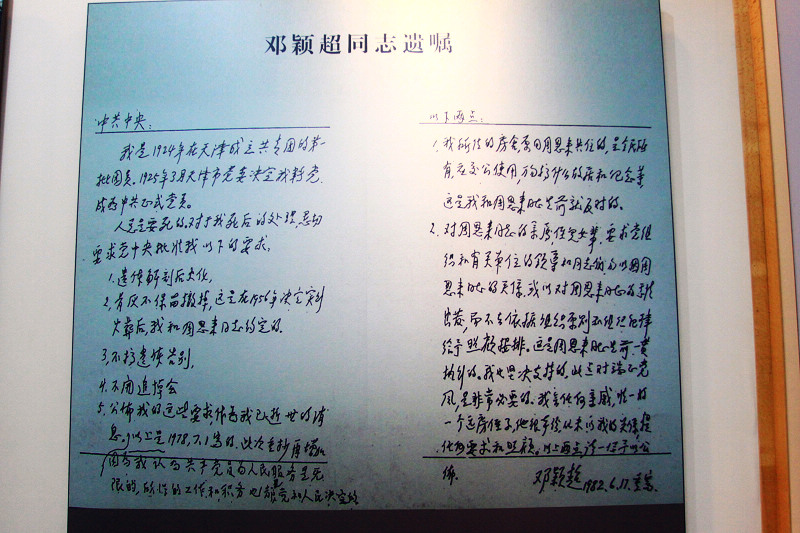 邓颖超同志遗嘱
中共中央：
我是1924年在天津成立共青团的第一
批团员。1925年3月天津市党委决定我转党，
成为中共正式党员。
人总是要死的。对于我死后的处理，恳切
要求党中央批准我以下的要求。
1. 遗体解剖后火化。
2. 骨灰不保留，撒掉，这是在1956年决定实行
火葬后，我和周恩来同志约定的。
3. 不搞遗体告别。
4. 不开追悼会
5. 公布我的这些要求作为我已逝世的消
息。以上是1978.7.1写的，此次重抄再增加
因为我认为共产党员为人民服务是无
限的，所作的工作和职务也都是党和人民决定的
以下两点：
1. 我所住的房舍，原同周恩来共住的，是全民所
有，应交公使用，万勿搞什么故居和纪念等，
这是我和周恩来同志生前就反对的。
2. 对周恩来同志的亲属，侄儿女辈，要求党组
织和有关单位的领导和同志们勿以因周
恩来同志的关系，或以对周恩来同志的感情
出发，而不去依据组织原则和组织纪律
给予照顾安排。这是周恩来同志生前一贯
执行的。我也坚决支持的。此点对端正党
风，是非常必要的。我无任何亲戚，唯一的
一个远房侄子，他很本份，从未以我的关系提
任何要求和照顾。以上两点请一并予以公
布。
邓颖超
1982.6.17.重写.